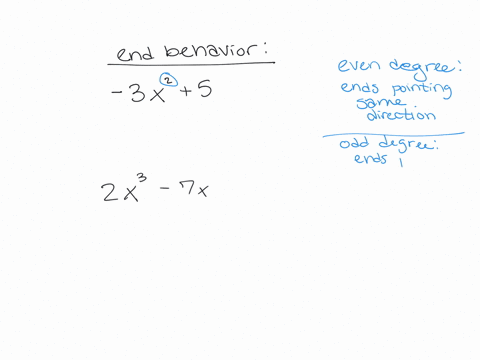 end behavior:
-3x² + 5
2x³ - 7x
even degree:
ends pointing
same
direction
odd degree:
ends